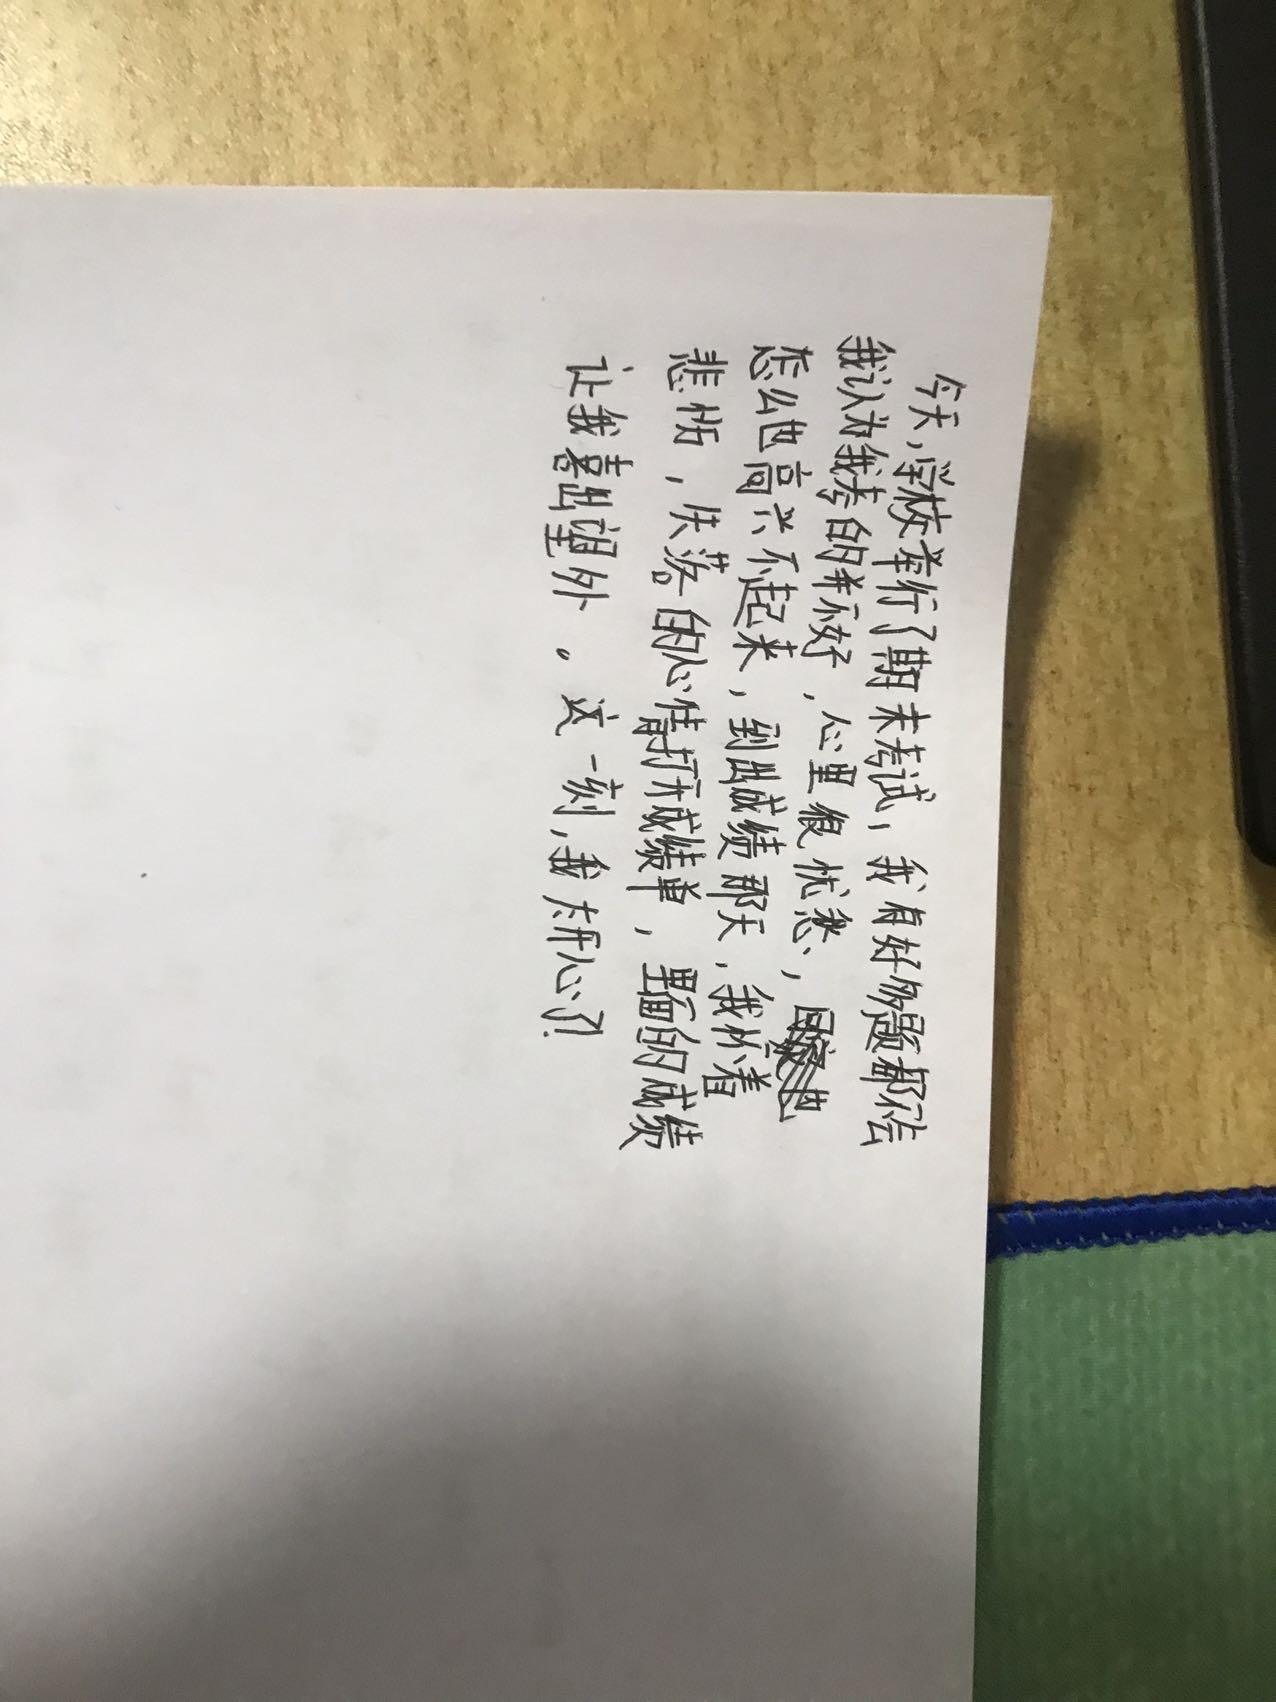 今天,学校举行了期末考试,我有好多题都不会
我认为我考的并不好,心里很忧愁,回家也
怎么也高兴不起来,到出成绩那天,我怀着
悲伤,失落的心情打开成绩单,里面的成绩
让我喜出望外。这一刻,我太开心了!